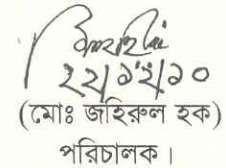 ২২/১২/১০
(মোঃ জহিরুল হক)
পরিচালক।